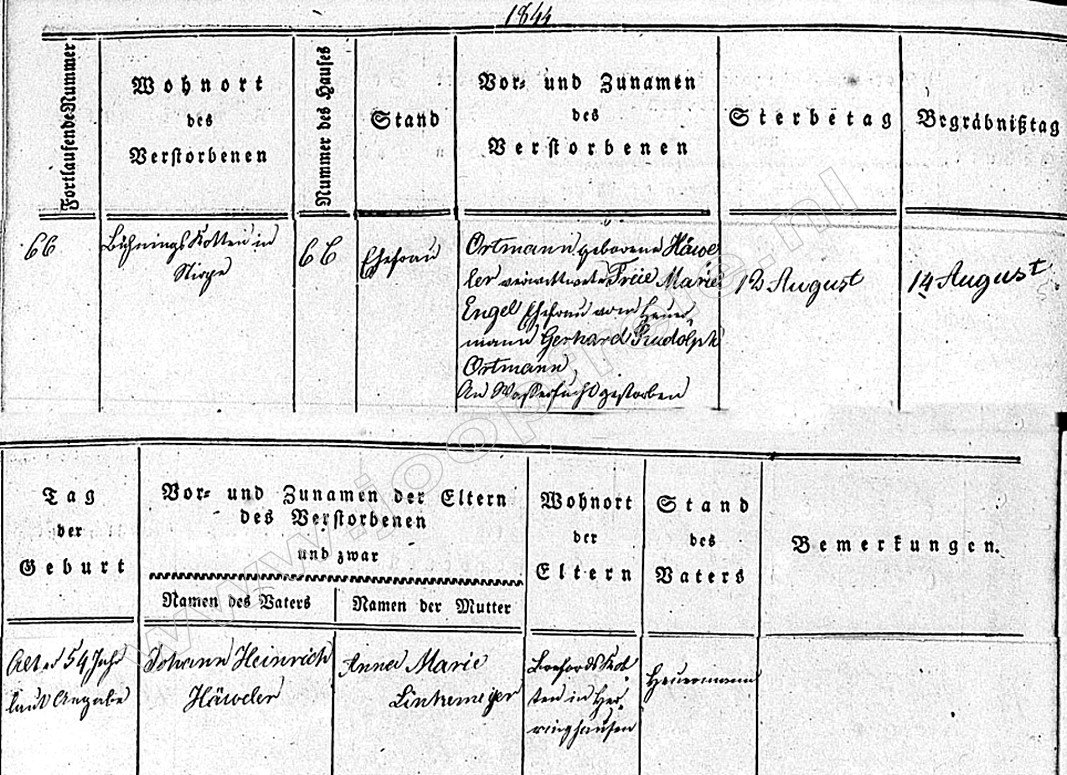 1844
Fortlaufende Nummer
Wohnort
des
Verstorbenen
Nummer des Hauses
Stand
Vor- und Zunamen
des
Verstorbenen
Sterbetag
Begräbnißtag
66
Bühnings Kotten in
Stirpe
66
Ehefrau
Ortmann geborene Häwe
ler verwittwete Freie Marie
Engel Ehefrau vom Heuer„
mann Gerhard Rudolph
Ortmann
An Wassersucht gestorben
12 August
14 August
Tag
der
Geburt
Vor- und Zunamen der Eltern
des Verstorbenen
und zwar
Namen des Vaters
Namen der Mutter
Wohnort
der
Eltern
Stand
des
Vaters
Bemerkungen.
Alter 54 Jahr
laut Angabe
Johann Heinrich
Häweler
Anna Marie
Linkemeijer
Kot
ten in Her„
ringhausen
Heuermann
www.joopfreie.nl